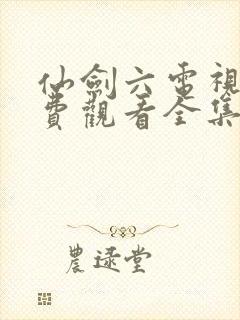 仙劍六電視
費觀看全集
農逯堂